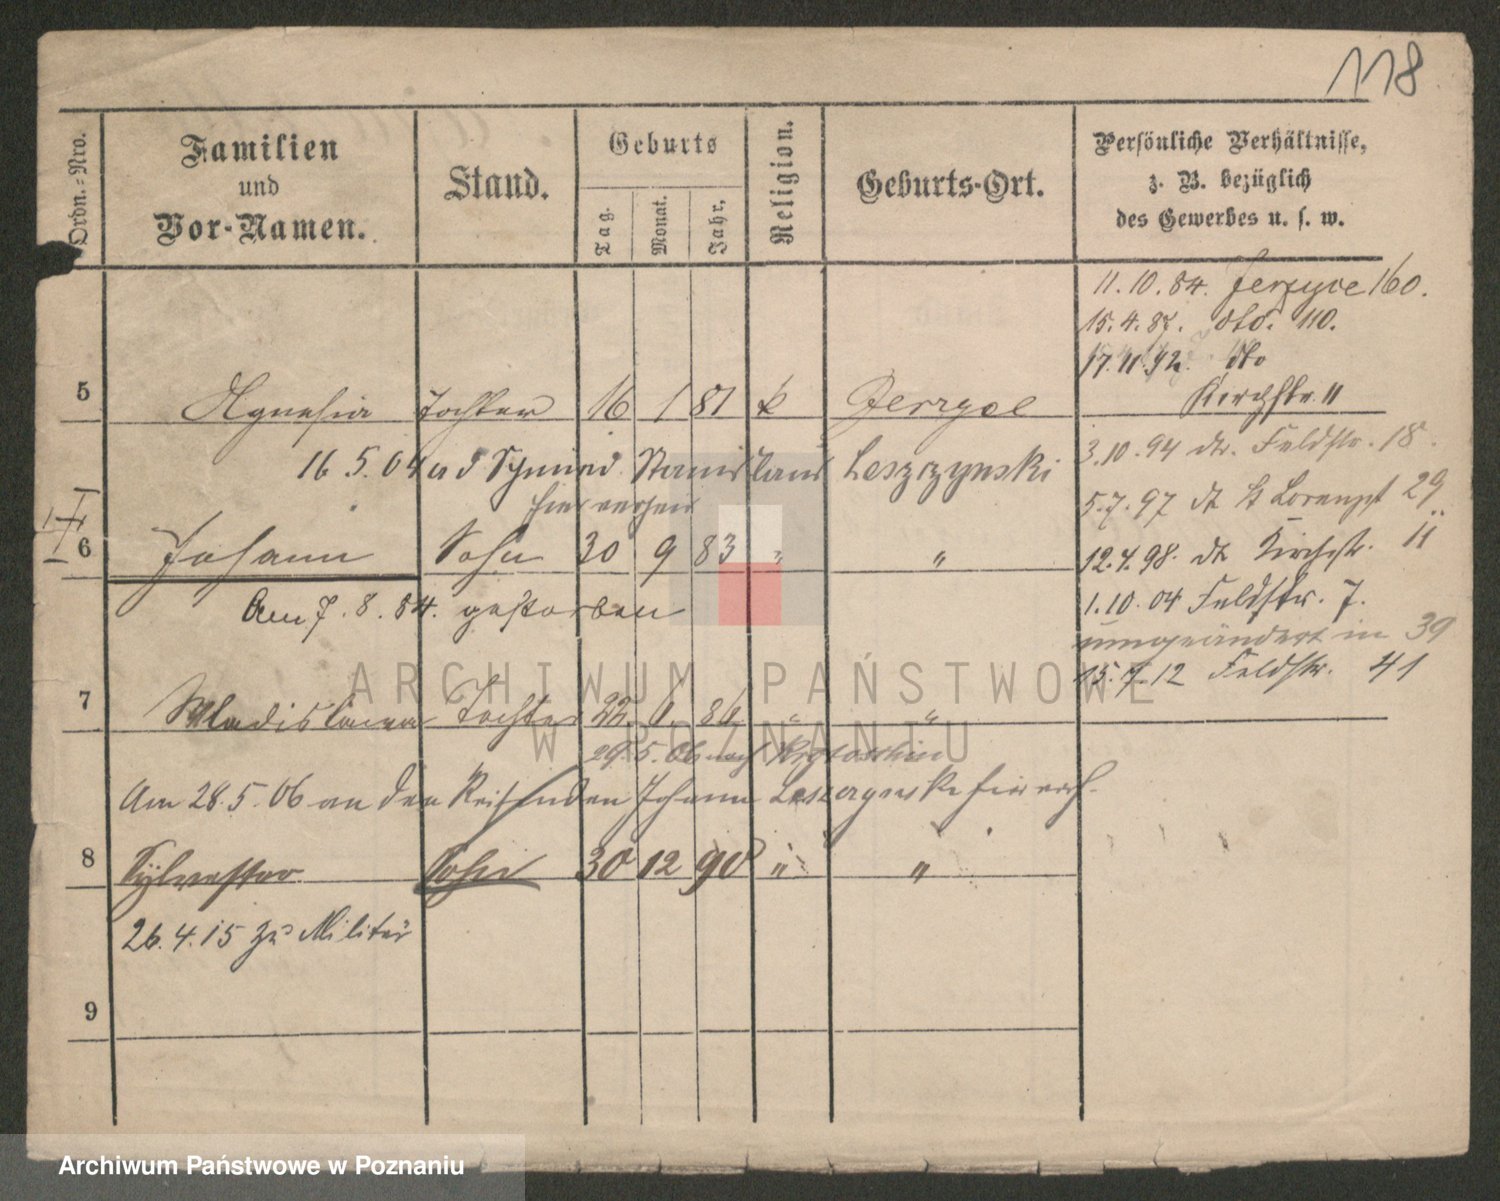 118
Ordn.-Nro.
Familien
und
Vor-Namen.
Stand.
Geburts
Tag.
Monat.
Jahr.
Religion.
Geburts-Ort.
Persönliche Verhältnisse,
z. B. bezüglich
des Gewerbes u. s. w.
11.10.84. Jerzyce 160.
15.4.87. dto. 110.
17.11.92. dto
Kirchstr. 11
5 Agnesia Tochter 16 1 81 k Jerzyce
3.10.94 dt. Feldstr. 18.
16.5.04 an d Schmied Stanislaus Leszczynski
hier verh
5.7.97 dt St Lorenzst 29
6 Johann Sohn 30 9 83 " "
12.4.98. dt. Kirchstr. 11
Am 7.8.84. gestorben
1.10.04 Feldstr. 7.
umgeändert in 39
15.7.12 Feldstr. 41
7 Wladislawa Tochter 22. 6. 86 " "
29.5.06 nach Krotoschin
Am 28.5.06 an den Reisenden Johann Leszczynski hier verh.
8 Sylvester Sohn 30 12 90 " "
26.4.15 zu Militär
9
ARCHIWUM PAŃSTWOWE
W POZNANIU
Archiwum Państwowe w Poznaniu